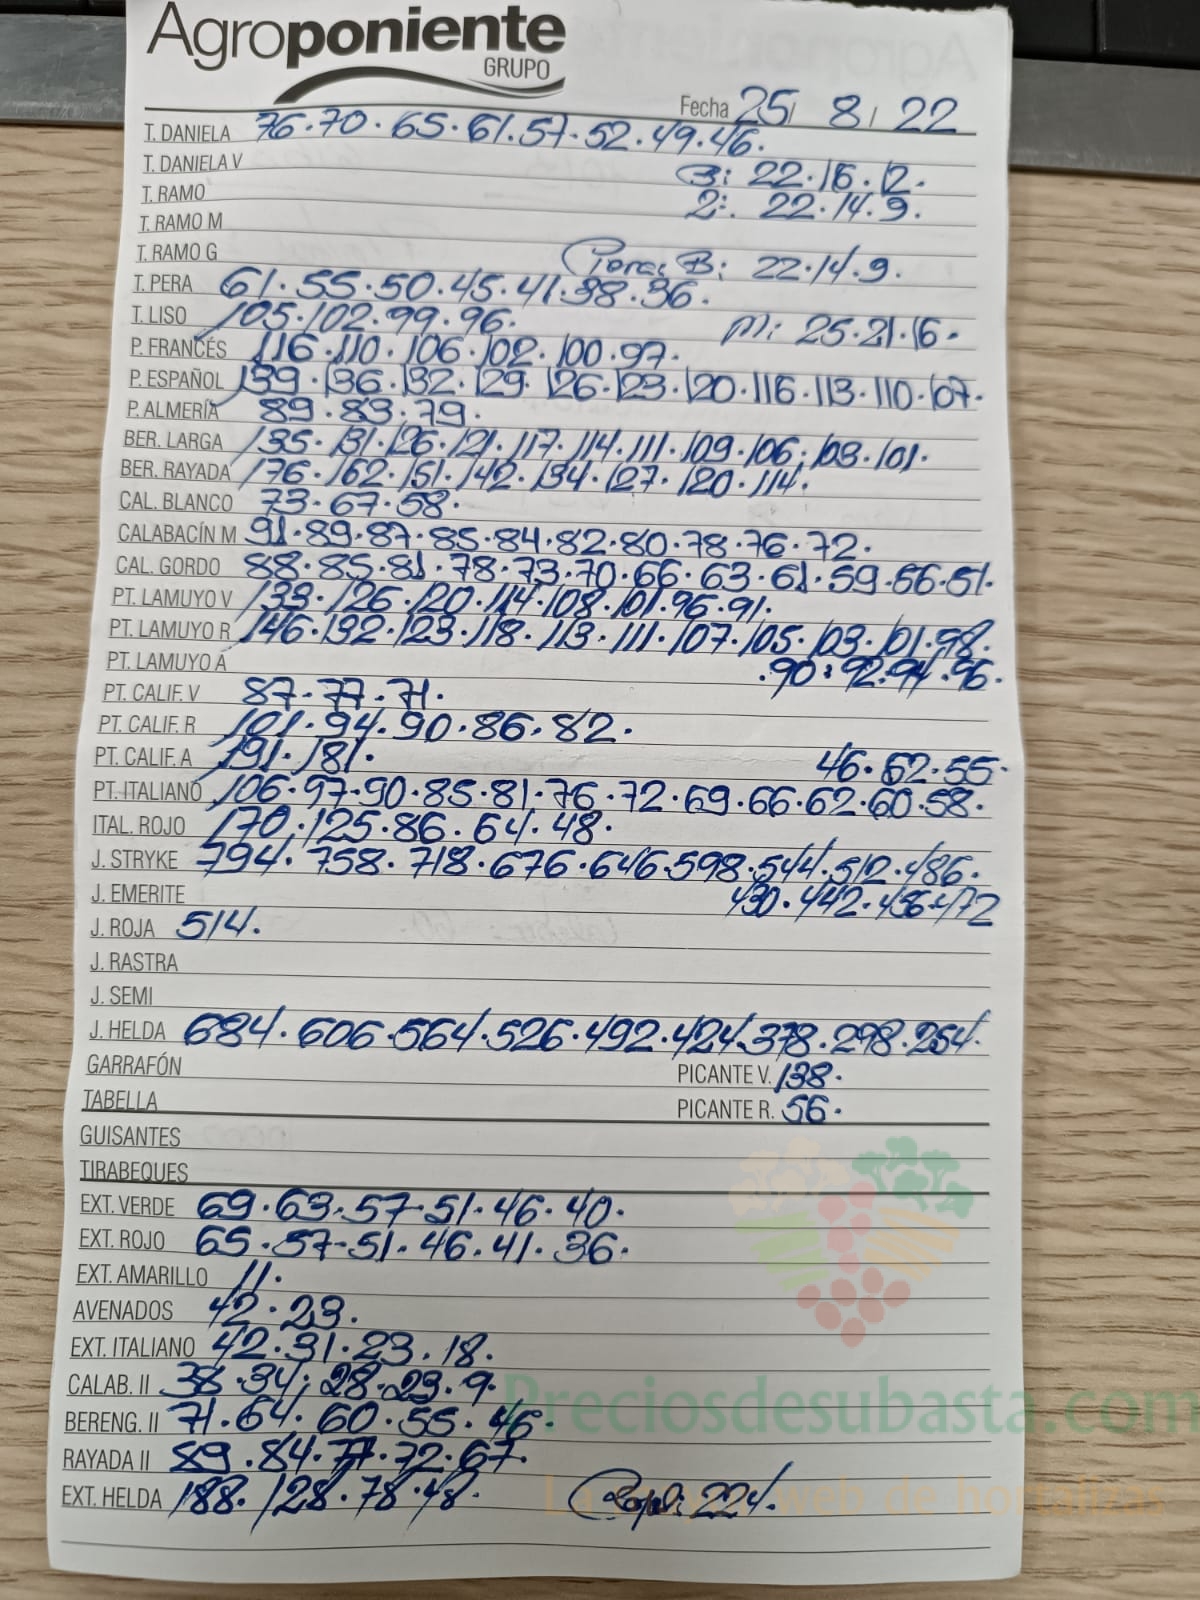 Agroponiente
GRUPO
Fecha 25/ 8/ 22
T. DANIELA 76.70.65.61.57.52.49.46.
T. DANIELA V B: 22.16.12.
T. RAMO 2: 22.14.9.
T. RAMO M
T. RAMO G Pera B: 22.14.9.
T. PERA 61.55.50.45.41.38.36.
T. LISO 105.102.99.96. M: 25.21.16.
P. FRANCÉS 116.110.106.102.100.97.
P. ESPAÑOL 139.136.132.129.126.123.120.116.113.110.107.
P. ALMERÍA 89.83.79.
BER. LARGA 135.131.126.121.117.114.111.109.106.103.101.
BER. RAYADA 176.162.151.142.134.127.120.114.
CAL. BLANCO 73.67.58.
CALABACÍN M 91.89.87.85.84.82.80.78.76.72.
CAL. GORDO 88.85.81.78.73.70.66.63.61.59.56.51.
PT. LAMUYO V 133.126.120.114.108.101.96.91.
PT. LAMUYO R 146.132.123.118.113.111.107.105.103.101.98.
PT. LAMUYO A .90.92.94.96.
PT. CALIF. V 87.77.71.
PT. CALIF. R 101.94.90.86.82.
PT. CALIF. A 191.181. 46.62.55.
PT. ITALIANO 106.97.90.85.81.76.72.69.66.62.60.58.
ITAL. ROJO 170.125.86.64.48.
J. STRYKE 794.758.718.676.646.598.544.512.486.
J. EMERITE 430.442.456.472
J. ROJA 514.
J. RASTRA
J. SEMI
J. HELDA 684.606.564.526.492.424.378.298.254.
GARRAFÓN PICANTE V. 138.
TABELLA PICANTE R. 56.
GUISANTES
TIRABEQUES
EXT. VERDE 69.63.57.51.46.40.
EXT. ROJO 65.57.51.46.41.36.
EXT. AMARILLO 11.
AVENADOS 42.23.
EXT. ITALIANO 42.31.23.18.
CALAB. II 38.34.28.23.9.
BERENG. II 71.64.60.55.46.
RAYADA II 89.84.77.72.67.
EXT. HELDA 188.128.78.48. 224.
Preciosdesubasta.com
web de hortalizas